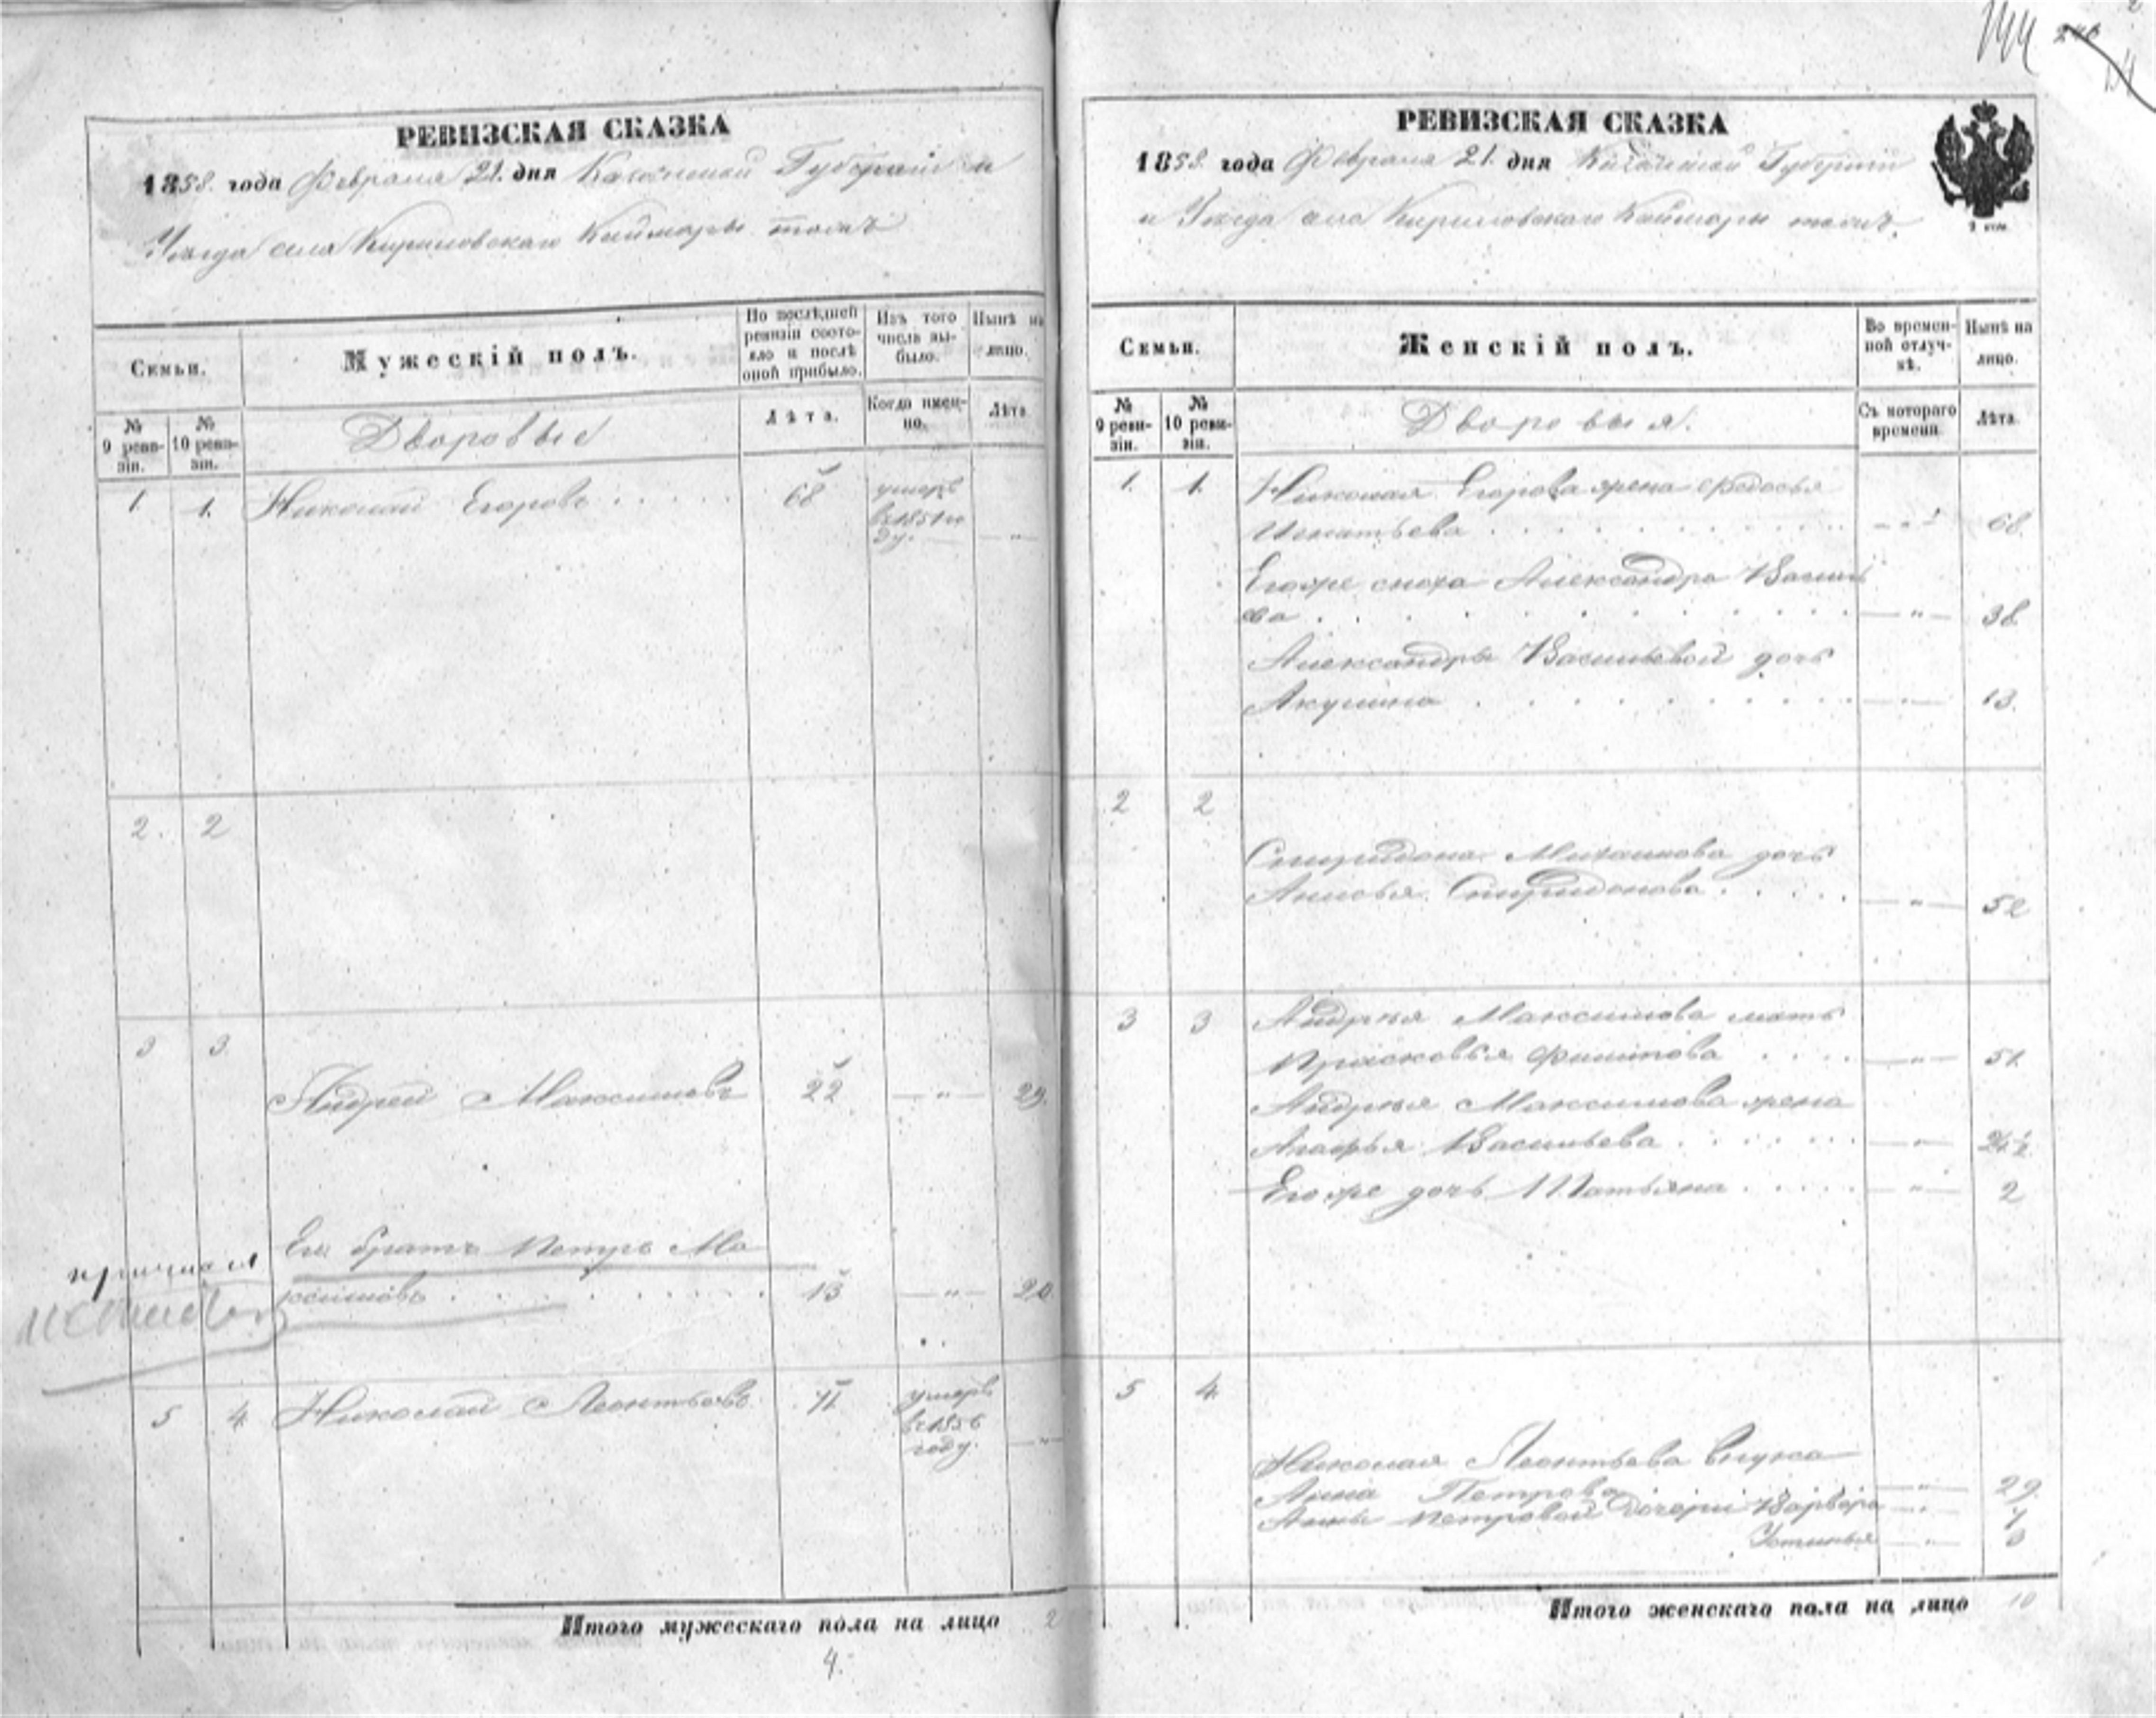 144
РЕВИЗСКАЯ СКАЗКА
1858. года Февраля 21. дня Казанской Губерніи и
Уѣзда села Кириловскаго Каймары тожъ
Семьи.
Мужескій полъ.
По послѣдней ревизіи состояло и послѣ оной прибыло.
Изъ того числа выбыло.
Нынѣ на лицо.
№ 9 ревизіи.
№ 10 ревизіи.
Дворовые
Лѣта.
Когда именно.
Лѣта.
1. 1. Николай Егоровъ . . . . 68 умеръ
въ 1851 го
ду. — „ —
2. 2
3 3.
Андрей Максимовъ 22 — „ — 29.
Его братъ Петръ Ма
причисл
ксимовъ . . . . . . . . 13 — „ — 20
5 4. Николай Леонтьевъ 71 умеръ
въ 1856
году. — „ —
Итого мужескаго пола на лицо 2
4.
РЕВИЗСКАЯ СКАЗКА
1858. года Февраля 21. дня Казанской Губерніи
и Уѣзда села Кириловскаго Каймары тожъ.
Семьи.
Женскій полъ.
Во временной отлучкѣ.
Нынѣ на лицо.
№ 9 ревизіи.
№ 10 ревизіи.
Дворовыя.
Съ котораго времени
Лѣта.
1. 1. Николая Егорова жена Федосья
Игнатьева . . . . . . . . — „ — 68.
Его же сноха Александра Василь
ева . . . . . . . . . . . — „ — 38.
Александры Васильевой дочь
Акулина . . . . . . . . . — „ — 13.
2 2
Спиридона Михаилова дочь
Анисья Спиридонова . . . . . — „ — 52
3 3 Андрея Максимова мать
Прасковья Филипова . . . . — „ — 51.
Андрея Максимова жена
Агафья Васильева . . . . . . — „ — 24½
Его же дочь Татьяна . . . . . — „ — 2
5 4.
Николая Леонтьева внука
Анна Петрова — „ — 29.
Анны Петровой дочери Варвара — „ — 7
Устинья — „ — 3
Итого женскаго пола на лицо 10